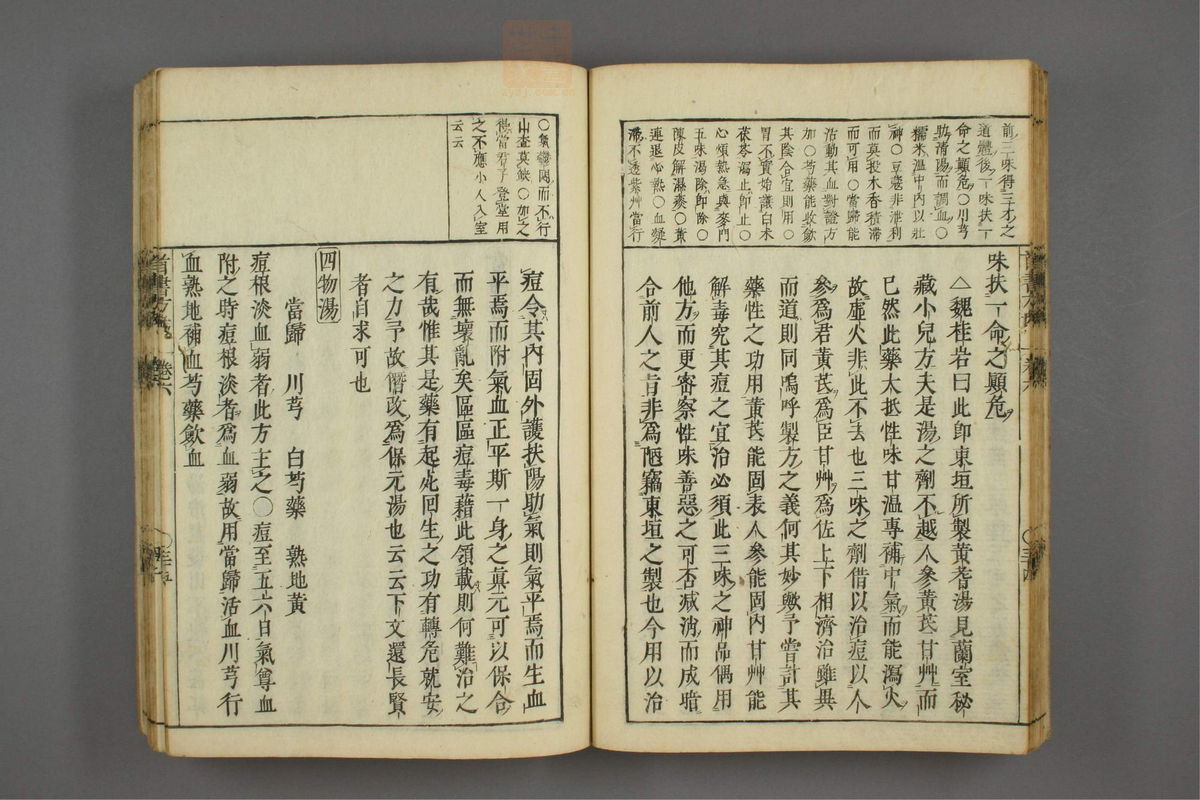 前三味得三才之
道體後一味扶一
命之顛危○川芎
助清陽而調血○
糯米溫中內以壯
神○豆蔻非泄利
而莫投木香積滯
而可用○當歸能
活動其血對證方
加○芍藥能收斂
其陰合宜則用○
胃不實始讓白朮
茯苓瀉止即止○
心煩熱急與麥門
五味渴除即除○
陳皮解濕痰○黃
連退心熱○血凝
滯不透紫艸當行
味扶一命之顛危
△魏桂岩曰此即東垣所製黃耆湯見蘭室秘
藏小兒方夫是湯之劑不越人參黃芪甘艸而
已然此藥大抵性味甘溫專補中氣而能瀉火
故虛火非此不去也三味之劑借以治痘以人
參爲君黃芪爲臣甘艸爲佐上下相濟治雖異
而道則同嗚呼製方之義何其妙歟予嘗計其
藥性之功用黃芪能固表人參能固內甘艸能
解毒究其痘之宜治必須此三味之神品偶用
他方而更審察性味善惡之可否減消而成暗
合前人之旨非爲陋竊東垣之製也今用以治
○氣鬱悶而不行
山查莫缺○加之
得當君子登堂用
之不應小人入室
云云
痘令其內固外護扶陽助氣則氣平焉而生血
平焉而附氣血正平斯一身之眞元可以保合
而無壞亂矣區區痘毒藉此領載則何難治之
有哉惟其是藥有起死回生之功有轉危就安
之力予故僭改爲保元湯也云云下文還長賢
者自求可也
四物湯
當歸 川芎 白芍藥 熟地黃
痘根淡血弱者此方主之○痘至五六日氣尊血
附之時痘根淡者爲血弱故用當歸活血川芎行
血熟地補血芍藥斂血